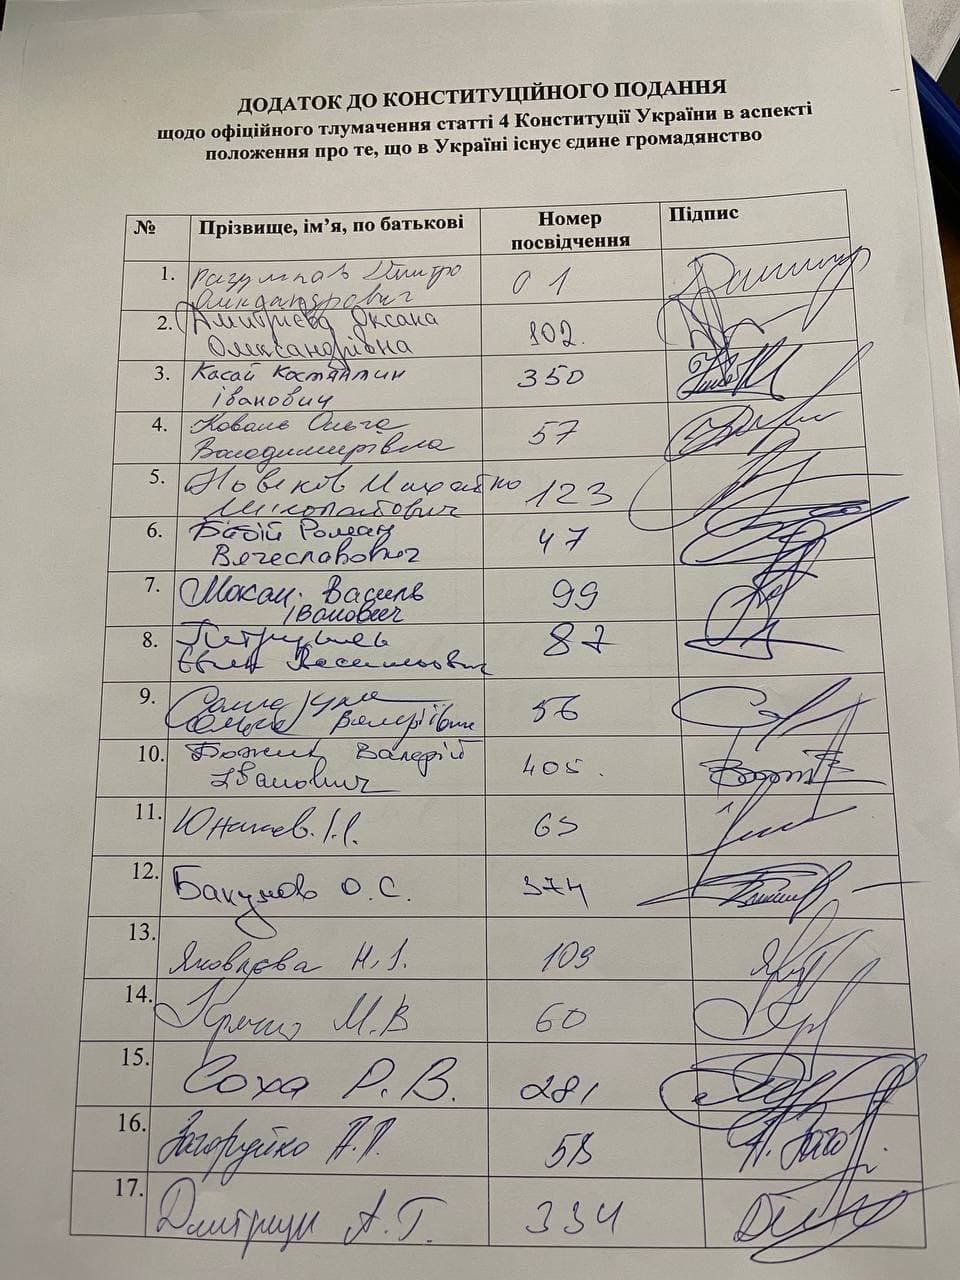 ДОДАТОК ДО КОНСТИТУЦІЙНОГО ПОДАННЯ
щодо офіційного тлумачення статті 4 Конституції України в аспекті
положення про те, що в Україні існує єдине громадянство
№ Прізвище, ім’я, по батькові Номер посвідчення Підпис
1. Разумков Дмитро 01
Олександрович
2. Дмитрієва Оксана 102.
Олександрівна
3. Касай Костянтин 350
Іванович
4. Коваль Ольга 57
Володимирівна
5. Новіков Михайло 123
Миколайович
6. Бабій Роман 47
Вячеславович
7. Мокан Василь 99
Іванович
8. 87
Васильович
9. 56
Валеріївна
10. Божик Валерій 405.
Іванович
11. Юнаков І.І. 65
12. Бакумов О.С. 374
13. Яковлєва Н.І. 109
14. М.В 60
15. Соха Р.В. 281
16. Загоруйко А.Л. 58
17. А.Г. 334